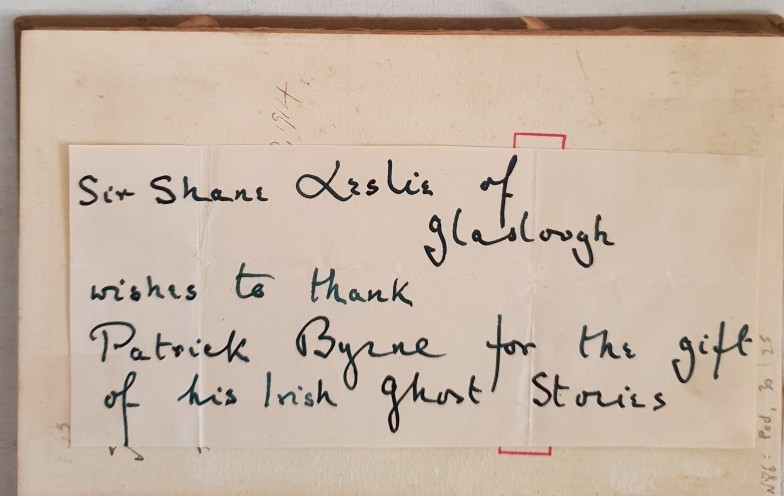 Sir Shane Leslie of
Glaslough
wishes to thank
Patrick Byrne for the gift
of his Irish Ghost Stories